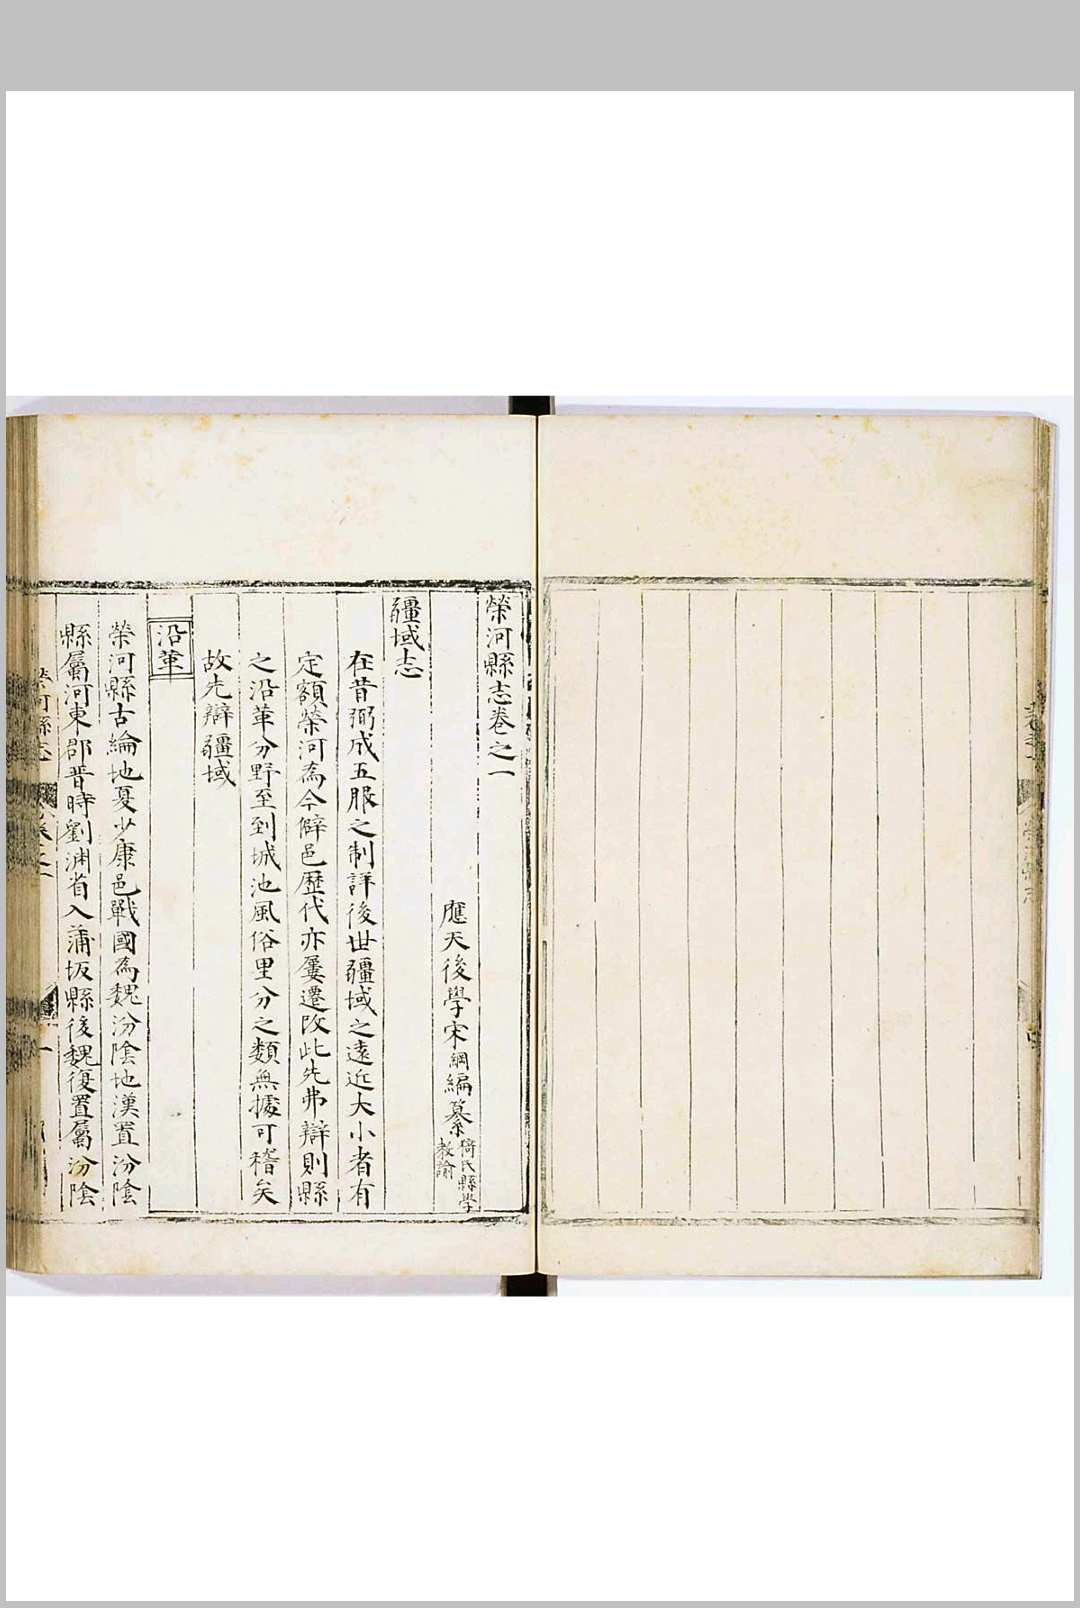 榮河縣志卷之一
應天後學宋綱編纂猗氏縣學
教諭
疆域志
在昔弼成五服之制詳後世疆域之遠近大小者有
定額榮河為今僻邑歷代亦屢遷改此先弗辯則縣
之沿革分野至到城池風俗里分之類無據可稽矣
故先辯疆域
沿革
榮河縣古綸地夏少康邑戰國為魏汾陰地漢置汾陰
縣屬河東郡晋時劉淵省入蒲坂縣後魏復置屬汾陰
榮河縣志 卷之一 一